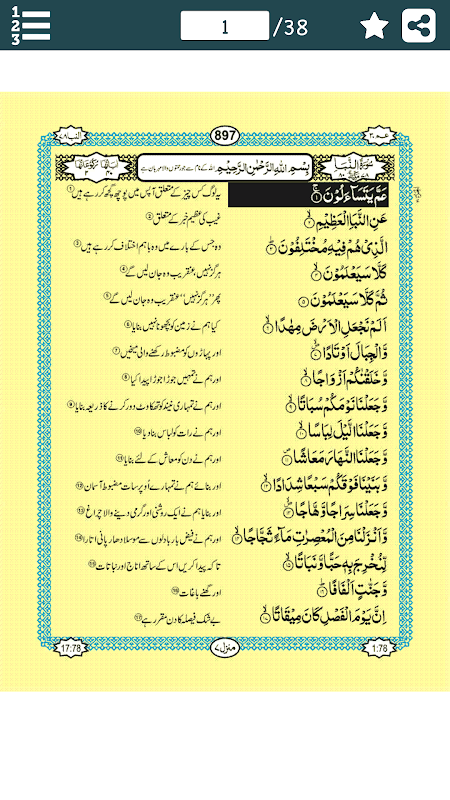 1
2
3
1 /38
عمّ ۳۰
897
النبا ۷۸
سورة النبا
بِسْمِ اللّٰهِ الرَّحْمٰنِ الرَّحِيْمِ اللہ کے نام سے جو رحمتوں والا مہربان ہے
عَمَّ يَتَسَآءَلُوْنَ ۱ یہ لوگ کس چیز کے متعلق آپس میں پوچھ گچھ کر رہے ہیں ۱
عَنِ النَّبَاِ الْعَظِيْمِ ۲ غیب کی عظیم خبر کے متعلق ۲
الَّذِيْ هُمْ فِيْهِ مُخْتَلِفُوْنَ ۳ وہ جس کے بارے میں وہ باہم اختلاف کر رہے ہیں ۳
كَلَّا سَيَعْلَمُوْنَ ۴ ہرگز نہیں، عنقریب وہ جان لیں گے ۴
ثُمَّ كَلَّا سَيَعْلَمُوْنَ ۵ پھر "ہرگز نہیں" عنقریب وہ جان لیں گے ۵
اَلَمْ نَجْعَلِ الْاَرْضَ مِهٰدًا ۶ کیا ہم نے زمین کو بچھونا نہیں بنایا ۶
وَّالْجِبَالَ اَوْتَادًا ۷ اور پہاڑوں کو مضبوط رکھنے والی میخیں ۷
وَّخَلَقْنٰكُمْ اَزْوَاجًا ۸ اور ہم نے تمہیں جوڑا جوڑا پیدا کیا ۸
وَّجَعَلْنَا نَوْمَكُمْ سُبَاتًا ۹ اور ہم نے تمہاری نیند کو تھکاوٹ دور کرنے کا ذریعہ بنایا ۹
وَّجَعَلْنَا الَّيْلَ لِبَاسًا ۱۰ اور ہم نے رات کو لباس بنا دیا ۱۰
وَّجَعَلْنَا النَّهَارَ مَعَاشًا ۱۱ اور ہم نے دن کو معاش کے لئے بنایا ۱۱
وَّبَنَيْنَا فَوْقَكُمْ سَبْعًا شِدَادًا ۱۲ اور بنائے ہم نے تمہارے اُوپر سات مضبوط آسمان ۱۲
وَّجَعَلْنَا سِرَاجًا وَّهَّاجًا ۱۳ اور بنایا ہم نے ایک روشنی اور گرمی دینے والا چراغ ۱۳
وَّاَنْزَلْنَا مِنَ الْمُعْصِرٰتِ مَآءً ثَجَّاجًا ۱۴ اور ہم نے فیض بار بادلوں سے موسلا دھار پانی اتارا ۱۴
لِّنُخْرِجَ بِهٖ حَبًّا وَّنَبَاتًا ۱۵ تاکہ پیدا کریں اس کے ساتھ اناج اور نباتات ۱۵
وَّجَنّٰتٍ اَلْفَافًا ۱۶ اور گھنے باغات ۱۶
اِنَّ يَوْمَ الْفَصْلِ كَانَ مِيْقَاتًا ۱۷ بے شک فیصلہ کا دن مقرر ہے ۱۷
1:78
منزل ۷
17:78